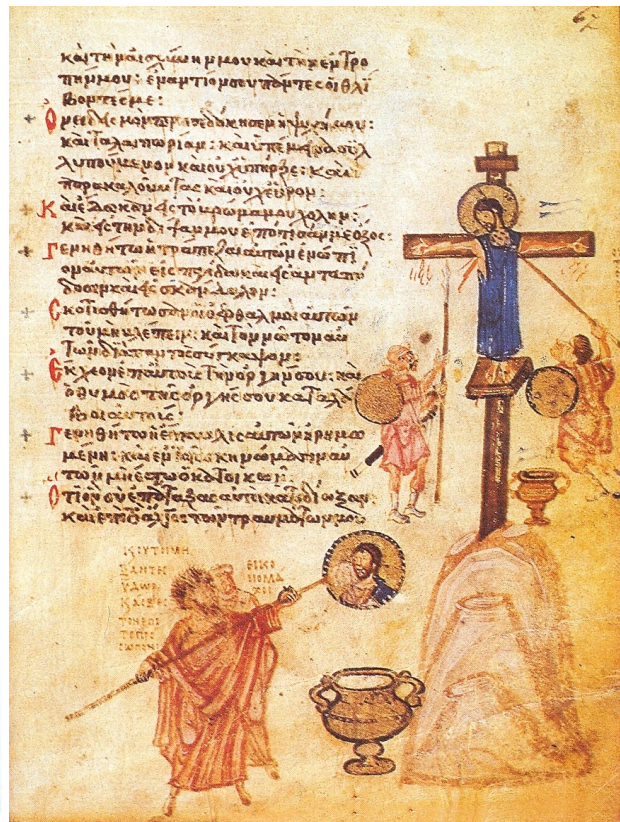 67
καὶ τὴν αἰσχύνην μου καὶ τὴν ἐντρο
πήν μου: ἐναντίον σου πάντες οἱ θλί
βοντές με:
Ὀνειδισμὸν προσεδόκησεν ἡ ψυχή μου:
καὶ ταλαιπωρίαν: καὶ ὑπέμεινα συλ
λυπούμενον καὶ οὐχ ὑπῆρξε: καὶ
παρακαλοῦντας καὶ οὐχ εὗρον:
Καὶ ἔδωκαν εἰς τὸ βρῶμά μου χολήν:
καὶ εἰς τὴν δίψαν μου ἐπότισάν με ὄξος:
Γενηθήτω ἡ τράπεζα αὐτῶν ἐνώπι
ον αὐτῶν εἰς παγίδα καὶ εἰς ἀνταπό
δοσιν καὶ εἰς σκάνδαλον:
Σκοτισθήτωσαν οἱ ὀφθαλμοὶ αὐτῶν
τοῦ μὴ βλέπειν: καὶ τὸν νῶτον αὐ
τῶν διὰ παντὸς σύγκαμψον:
Ἔκχεον ἐπ' αὐτοὺς τὴν ὀργήν σου: καὶ
ὁ θυμὸς τῆς ὀργῆς σου καταλά
βοι αὐτούς:
Γενηθήτω ἡ ἔπαυλις αὐτῶν ἠρημω
μένη: καὶ ἐν τοῖς σκηνώμασιν αὐ
τῶν μὴ ἔστω ὁ κατοικῶν:
Ὅτι ὃν σὺ ἐπάταξας αὐτοὶ κατεδίωξαν:
καὶ ἐπὶ τὸ ἄλγος τῶν τραυμάτων μου
ΥΔΩΡ
ΕΙΚΟ
ΝΟΜΑ
ΧΟΙ